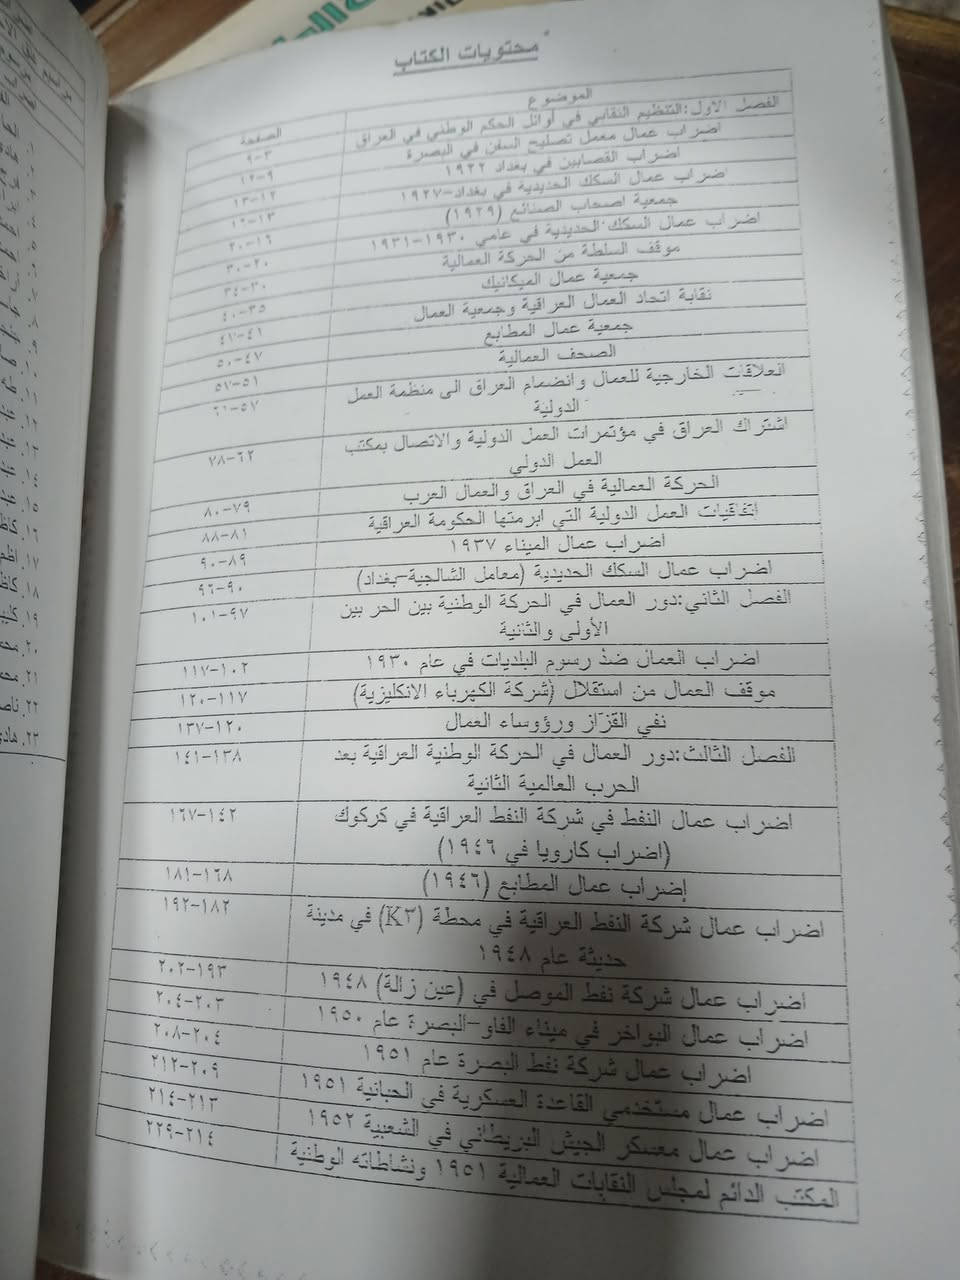 محتويات الكتاب
الموضوع
الصفحة
الفصل الاول:التنظيم النقابي في أوائل الحكم الوطني في العراق
٣-٩
اضراب عمال معمل تصليح السفن في البصرة
٩-١٢
اضراب القصابين في بغداد ١٩٢٢
١٢-١٣
اضراب عمال السكك الحديدية في بغداد-١٩٢٧
جمعية اصحاب الصنائع (١٩٢٩)
١٦-٢٠
اضراب عمال السكك الحديدية في عامي ١٩٣٠-١٩٣١
٢٠-٣٠
موقف السلطة من الحركة العمالية
٣٠-٣٤
جمعية عمال الميكانيك
٣٥-٤٠
نقابة اتحاد العمال العراقية وجمعية العمال
٤١-٤٧
جمعية عمال المطابع
٤٧-٥٠
الصحف العمالية
٥١-٥٧
العلاقات الخارجية للعمال وانضمام العراق الى منظمة العمل
الدولية
٥٧-٦١
اشتراك العراق في مؤتمرات العمل الدولية والاتصال بمكتب
العمل الدولي
٦٢-٧٨
الحركة العمالية في العراق والعمال العرب
٧٩-٨٠
إتفاقيات العمل الدولية التي ابرمتها الحكومة العراقية
٨١-٨٨
اضراب عمال الميناء ١٩٣٧
٨٩-٩٠
اضراب عمال السكك الحديدية (معامل الشالجية-بغداد)
٩٠-٩٦
الفصل الثاني:دور العمال في الحركة الوطنية بين الحر بين
الأولى والثانية
٩٧-١٠١
اضراب العمال ضد رسوم البلديات في عام ١٩٣٠
١٠٢-١١٧
موقف العمال من استقلال (شركة الكهرباء الانكليزية)
١١٧-١٢٠
نفي القزاز ورؤوساء العمال
١٢٠-١٣٧
الفصل الثالث:دور العمال في الحركة الوطنية العراقية بعد
الحرب العالمية الثانية
١٣٨-١٤١
اضراب عمال النفط في شركة النفط العراقية في كركوك
(اضراب كاروبا في ١٩٤٦)
١٤٢-١٦٧
إضراب عمال المطابع (١٩٤٦)
١٦٨-١٨١
اضراب عمال شركة النفط العراقية في محطة (K٣) في مدينة
حديثة عام ١٩٤٨
١٨٢-١٩٢
اضراب عمال شركة نفط الموصل في (عين زالة) ١٩٤٨
١٩٣-٢٠٢
اضراب عمال البواخر في ميناء الفاو-البصرة عام ١٩٥٠
٢٠٣-٢٠٤
اضراب عمال شركة نفط البصرة عام ١٩٥١
٢٠٤-٢٠٨
اضراب عمال مستخدمي القاعدة العسكرية في الحبانية ١٩٥١
٢٠٩-٢١٢
اضراب عمال معسكر الجيش البريطاني في الشعيبة ١٩٥٢
٢١٣-٢١٤
المكتب الدائم لمجلس النقابات العمالية ١٩٥١ ونشاطاته الوطنية
٢١٤-٢٢٩